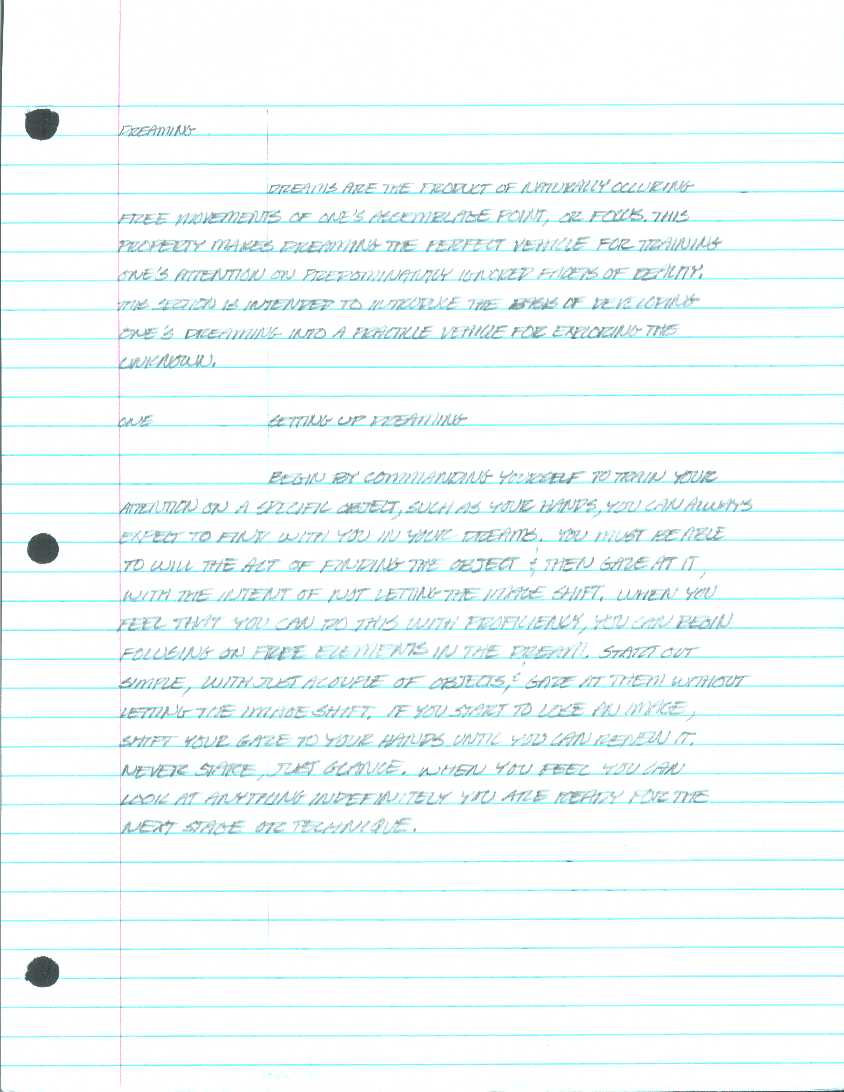 DREAMING
DREAMS ARE THE PRODUCT OF NATURALLY OCCURING
FREE MOVEMENTS OF ONE'S ASSEMBLAGE POINT, OR FOCUS. THIS
PROPERTY MAKES DREAMING THE PERFECT VEHICLE FOR TRAINING
ONE'S ATTENTION ON PREDOMINATLY IGNORED FACETS OF REALITY.
THIS SECTION IS INTENDED TO INTRODUCE THE BASIS OF DEVELOPING
ONE'S DREAMING INTO A PRACTICLE VEHICLE FOR EXPLORING THE
UNKNOWN.
ONE SETTING UP DREAMING
BEGIN BY COMMANDING YOURSELF TO TRAIN YOUR
ATTENTION ON A SPECIFIC OBJECT, SUCH AS YOUR HANDS, YOU CAN ALWAYS
EXPECT TO FIND WITH YOU IN YOUR DREAMS. YOU MUST BE ABLE
TO WILL THE ACT OF FINDING THE OBJECT & THEN GAZE AT IT,
WITH THE INTENT OF NOT LETTING THE IMAGE SHIFT. WHEN YOU
FEEL THAT YOU CAN DO THIS WITH PROFICIENCY, YOU CAN BEGIN
FOCUSING ON FREE ELEMENTS IN THE DREAM. START OUT
SIMPLE, WITH JUST A COUPLE OF OBJECTS, & GAZE AT THEM WITHOUT
LETTING THE IMAGE SHIFT. IF YOU START TO LOSE AN IMAGE,
SHIFT YOUR GAZE TO YOUR HANDS UNTIL YOU CAN RENEW IT.
NEVER STARE, JUST GLANCE. WHEN YOU FEEL YOU CAN
LOOK AT ANYTHING INDEFINITELY YOU ARE READY FOR THE
NEXT STAGE OR TECHNIQUE.